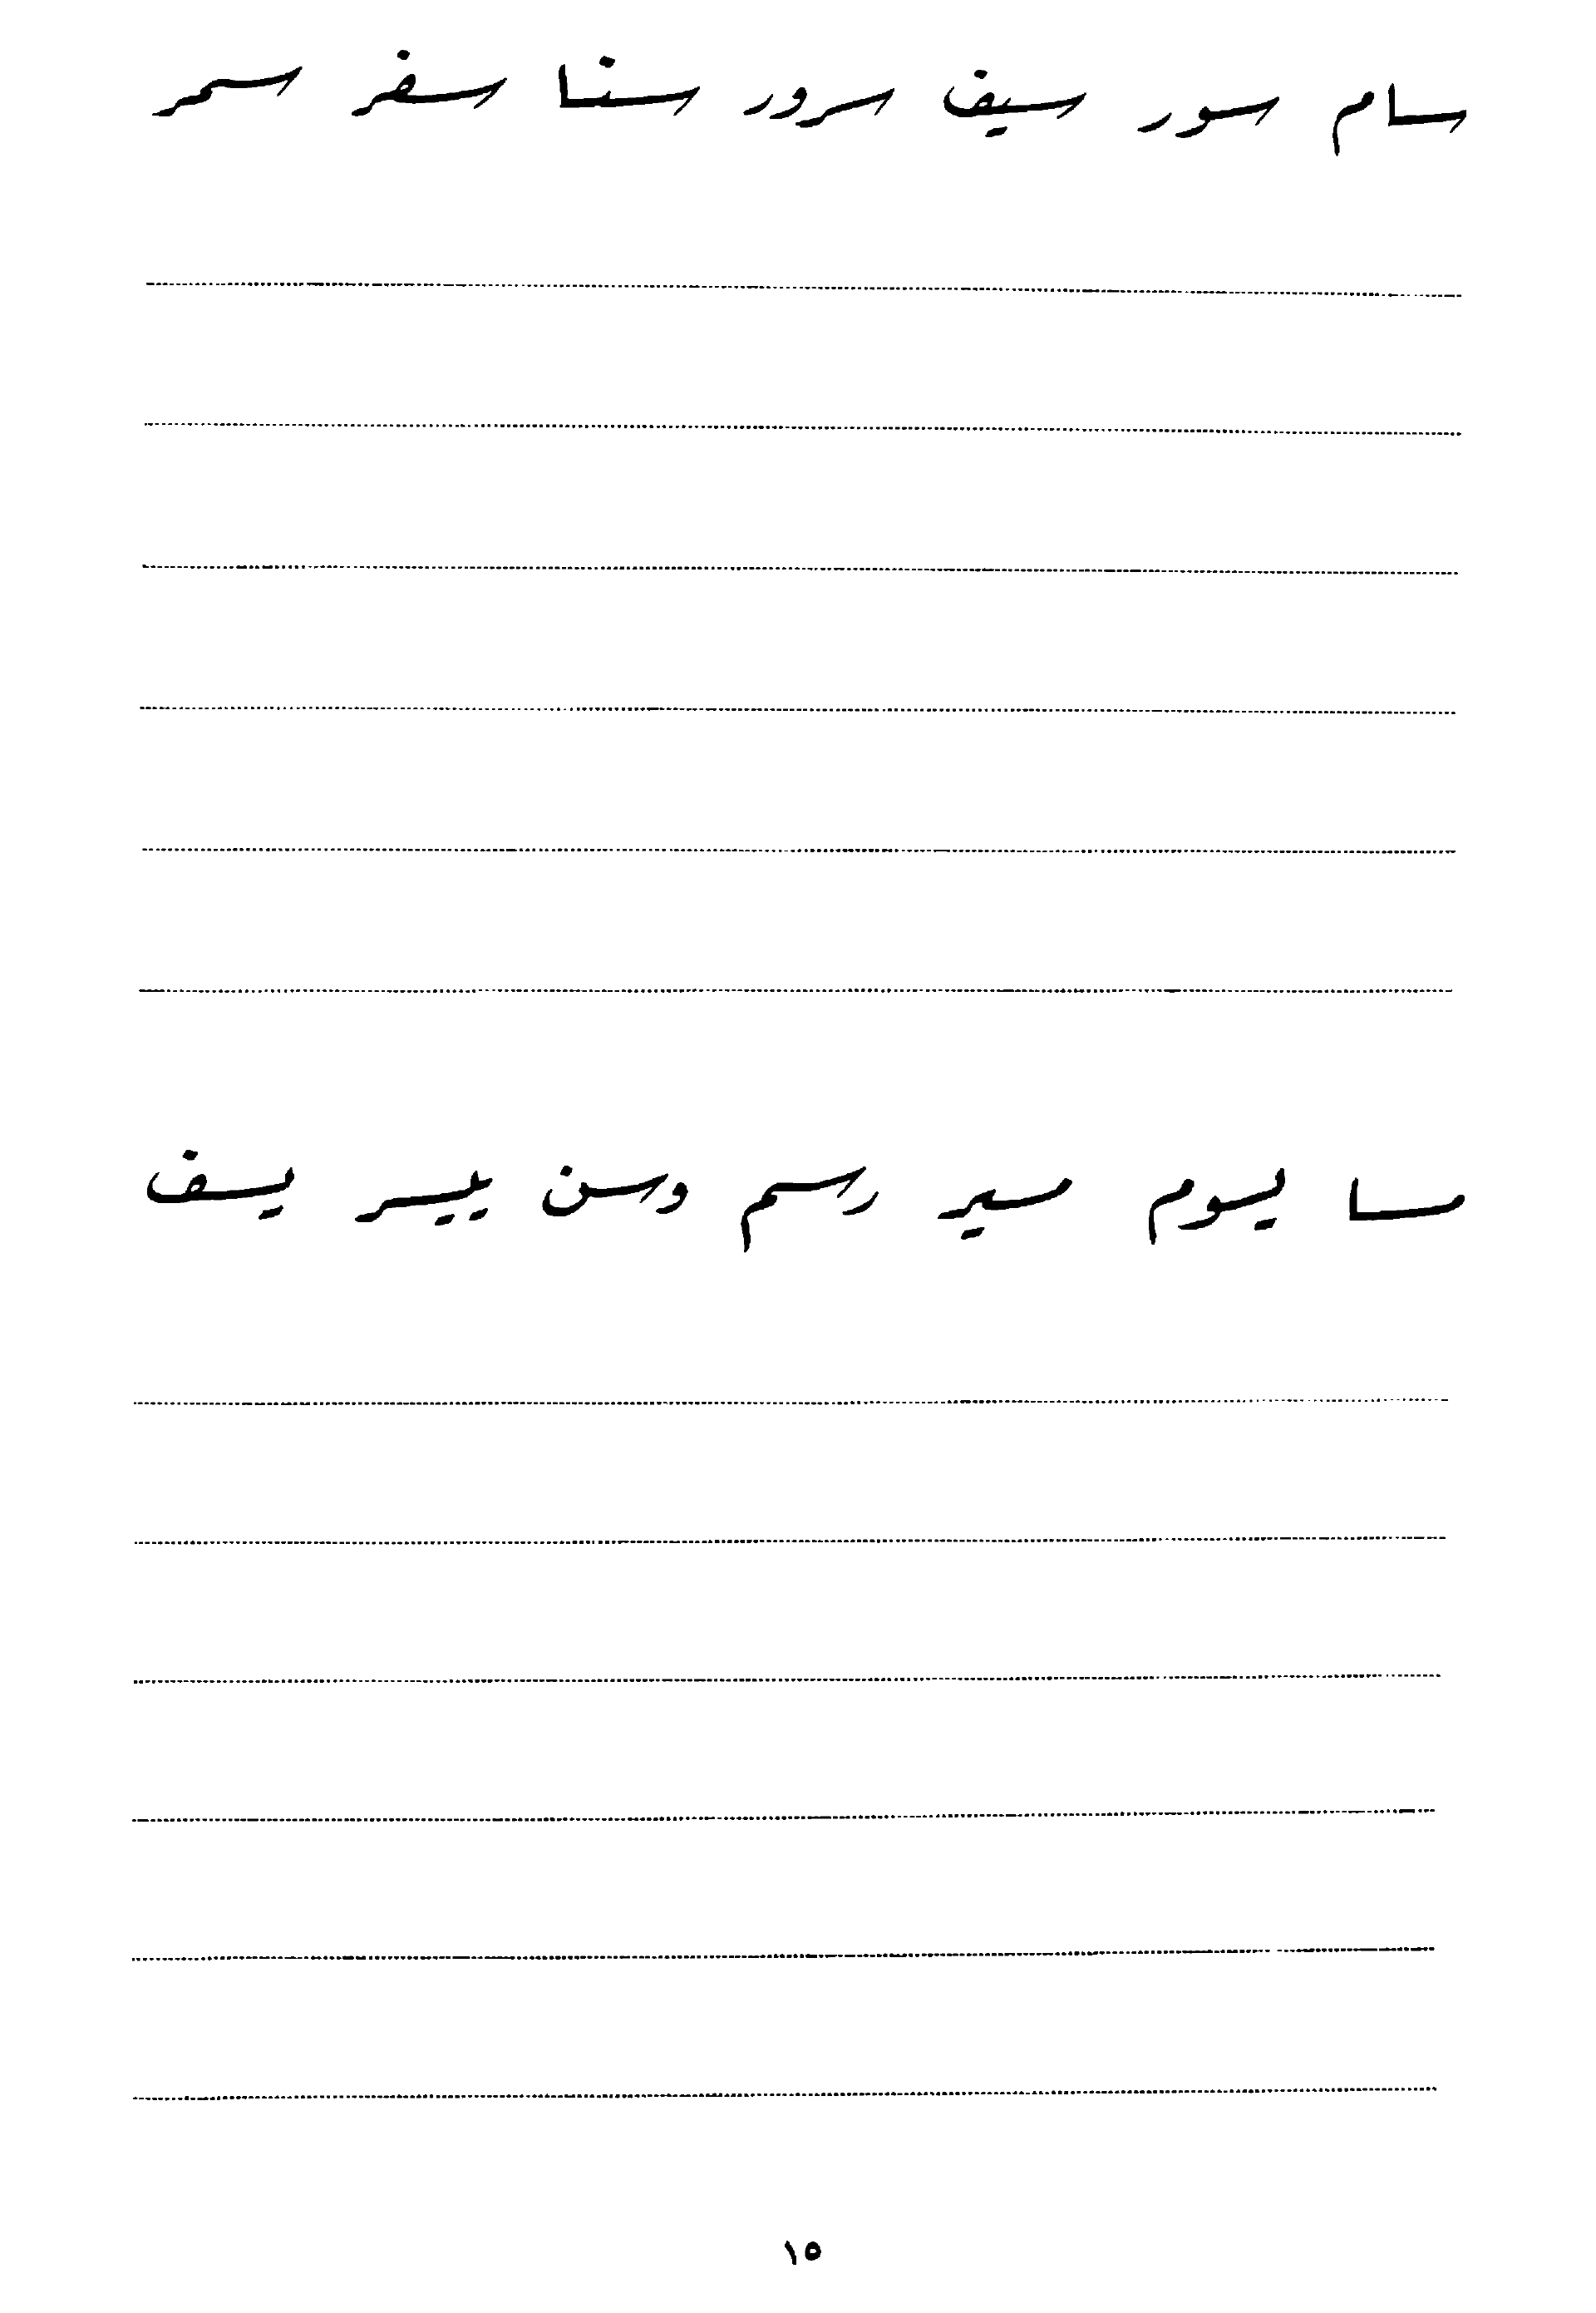 سام سور سيف سرور سنا سفر سمر
مسا يسوم مسير رسم وسن ييسر يسف
١٥